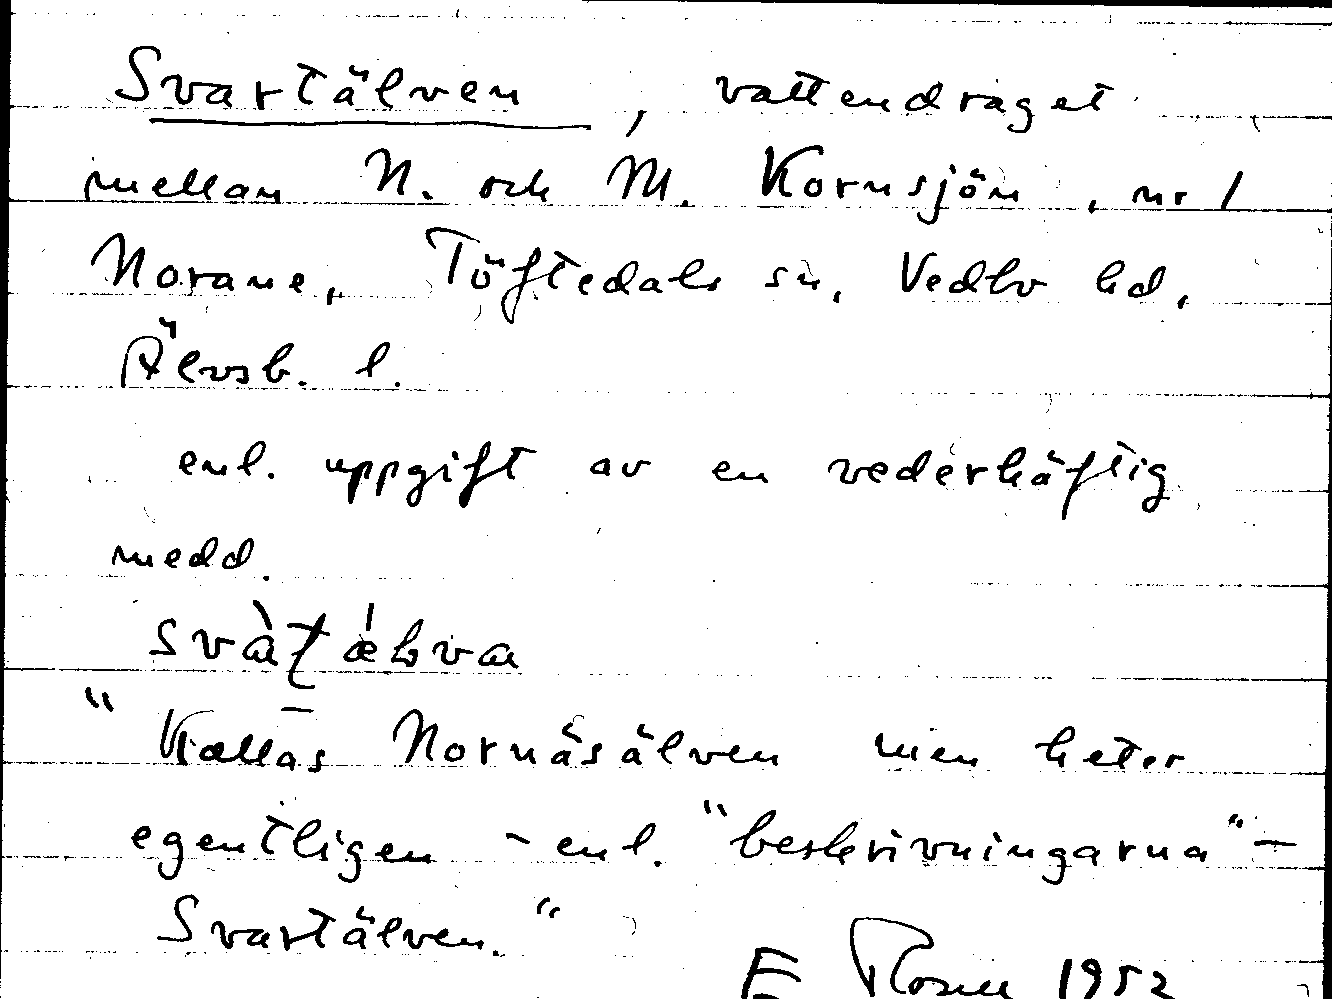 Svartälven, vattendraget
mellan N. och M. Kornsjön, nr 1
Norane, Töftedals sn, Vedbo hd,
Älvsb. l.
enl. uppgift av en vederhäftig
medd.
"Kallas Nornäsälven men heter
egentligen - enl. "beskrivningarna" -
Svartälven."
E 1952